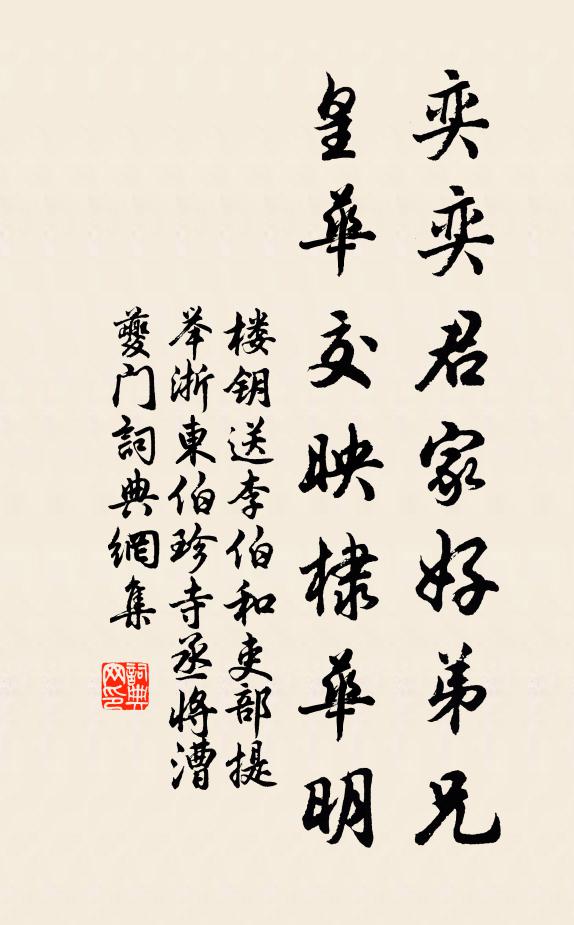 奕奕君家好弟兄
皇華交映棣華明
楼钥送李伯和吏部提
举浙東伯珍寺丞將漕
夔门詞典網集
詞典
网印